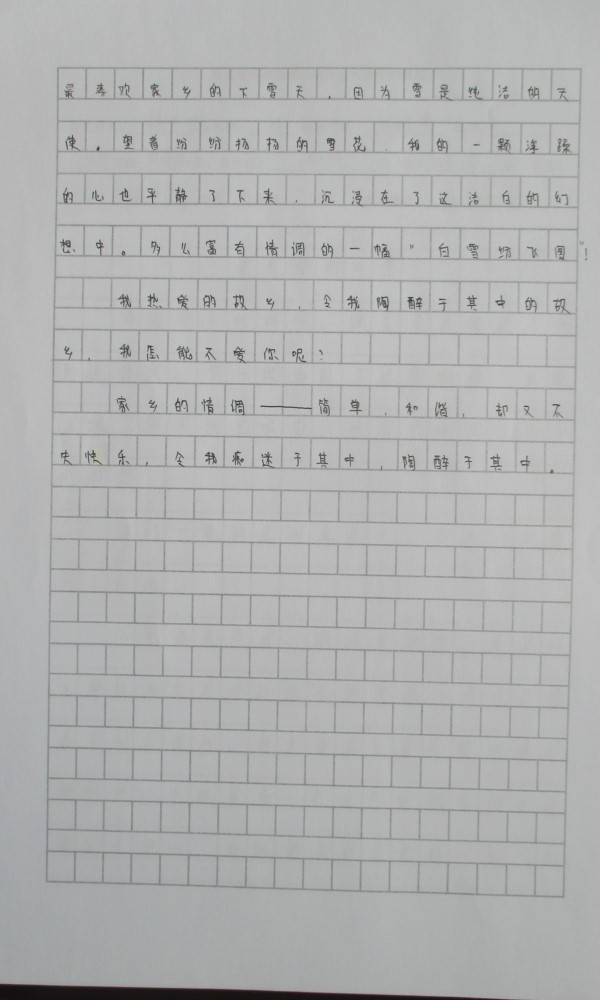 最喜欢家乡的下雪天，因为雪是纯洁的天
使。望着纷纷扬扬的雪花，我的一颗浮躁
的心也平静了下来，沉浸在了这洁白的幻
想中。多么富有情调的一幅“白雪纷飞图”！
我热爱的故乡，令我陶醉于其中的故
乡，我怎能不爱你呢？
家乡的情调——简单，和谐，却又不
失快乐，令我痴迷于其中，陶醉于其中。